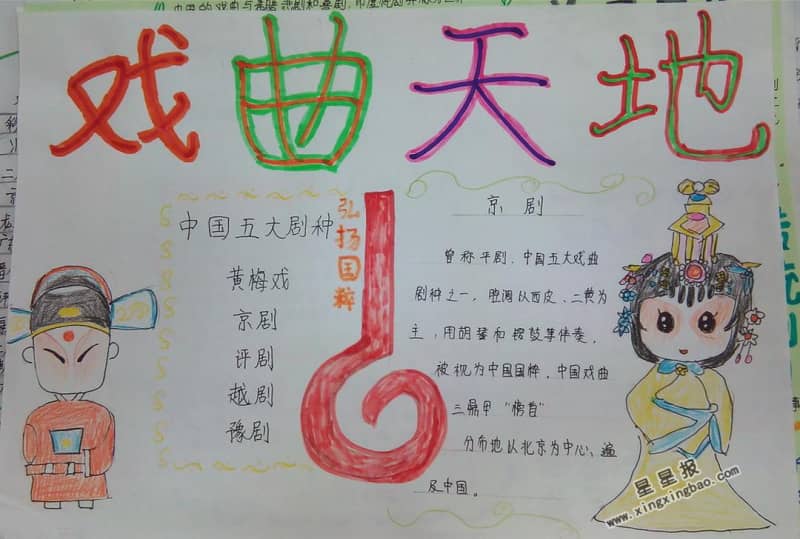 戏曲天地
中国五大剧种
黄梅戏
京剧
评剧
越剧
豫剧
弘扬国粹
京剧
曾称平剧,中国五大戏曲
剧种之一,腔调以西皮、二黄为
主,用胡琴和锣鼓等伴奏,
被视为中国国粹,中国戏曲
三鼎甲“榜首”
分布地以北京为中心,遍
及中国。
星星报
www.xingxingbao.com